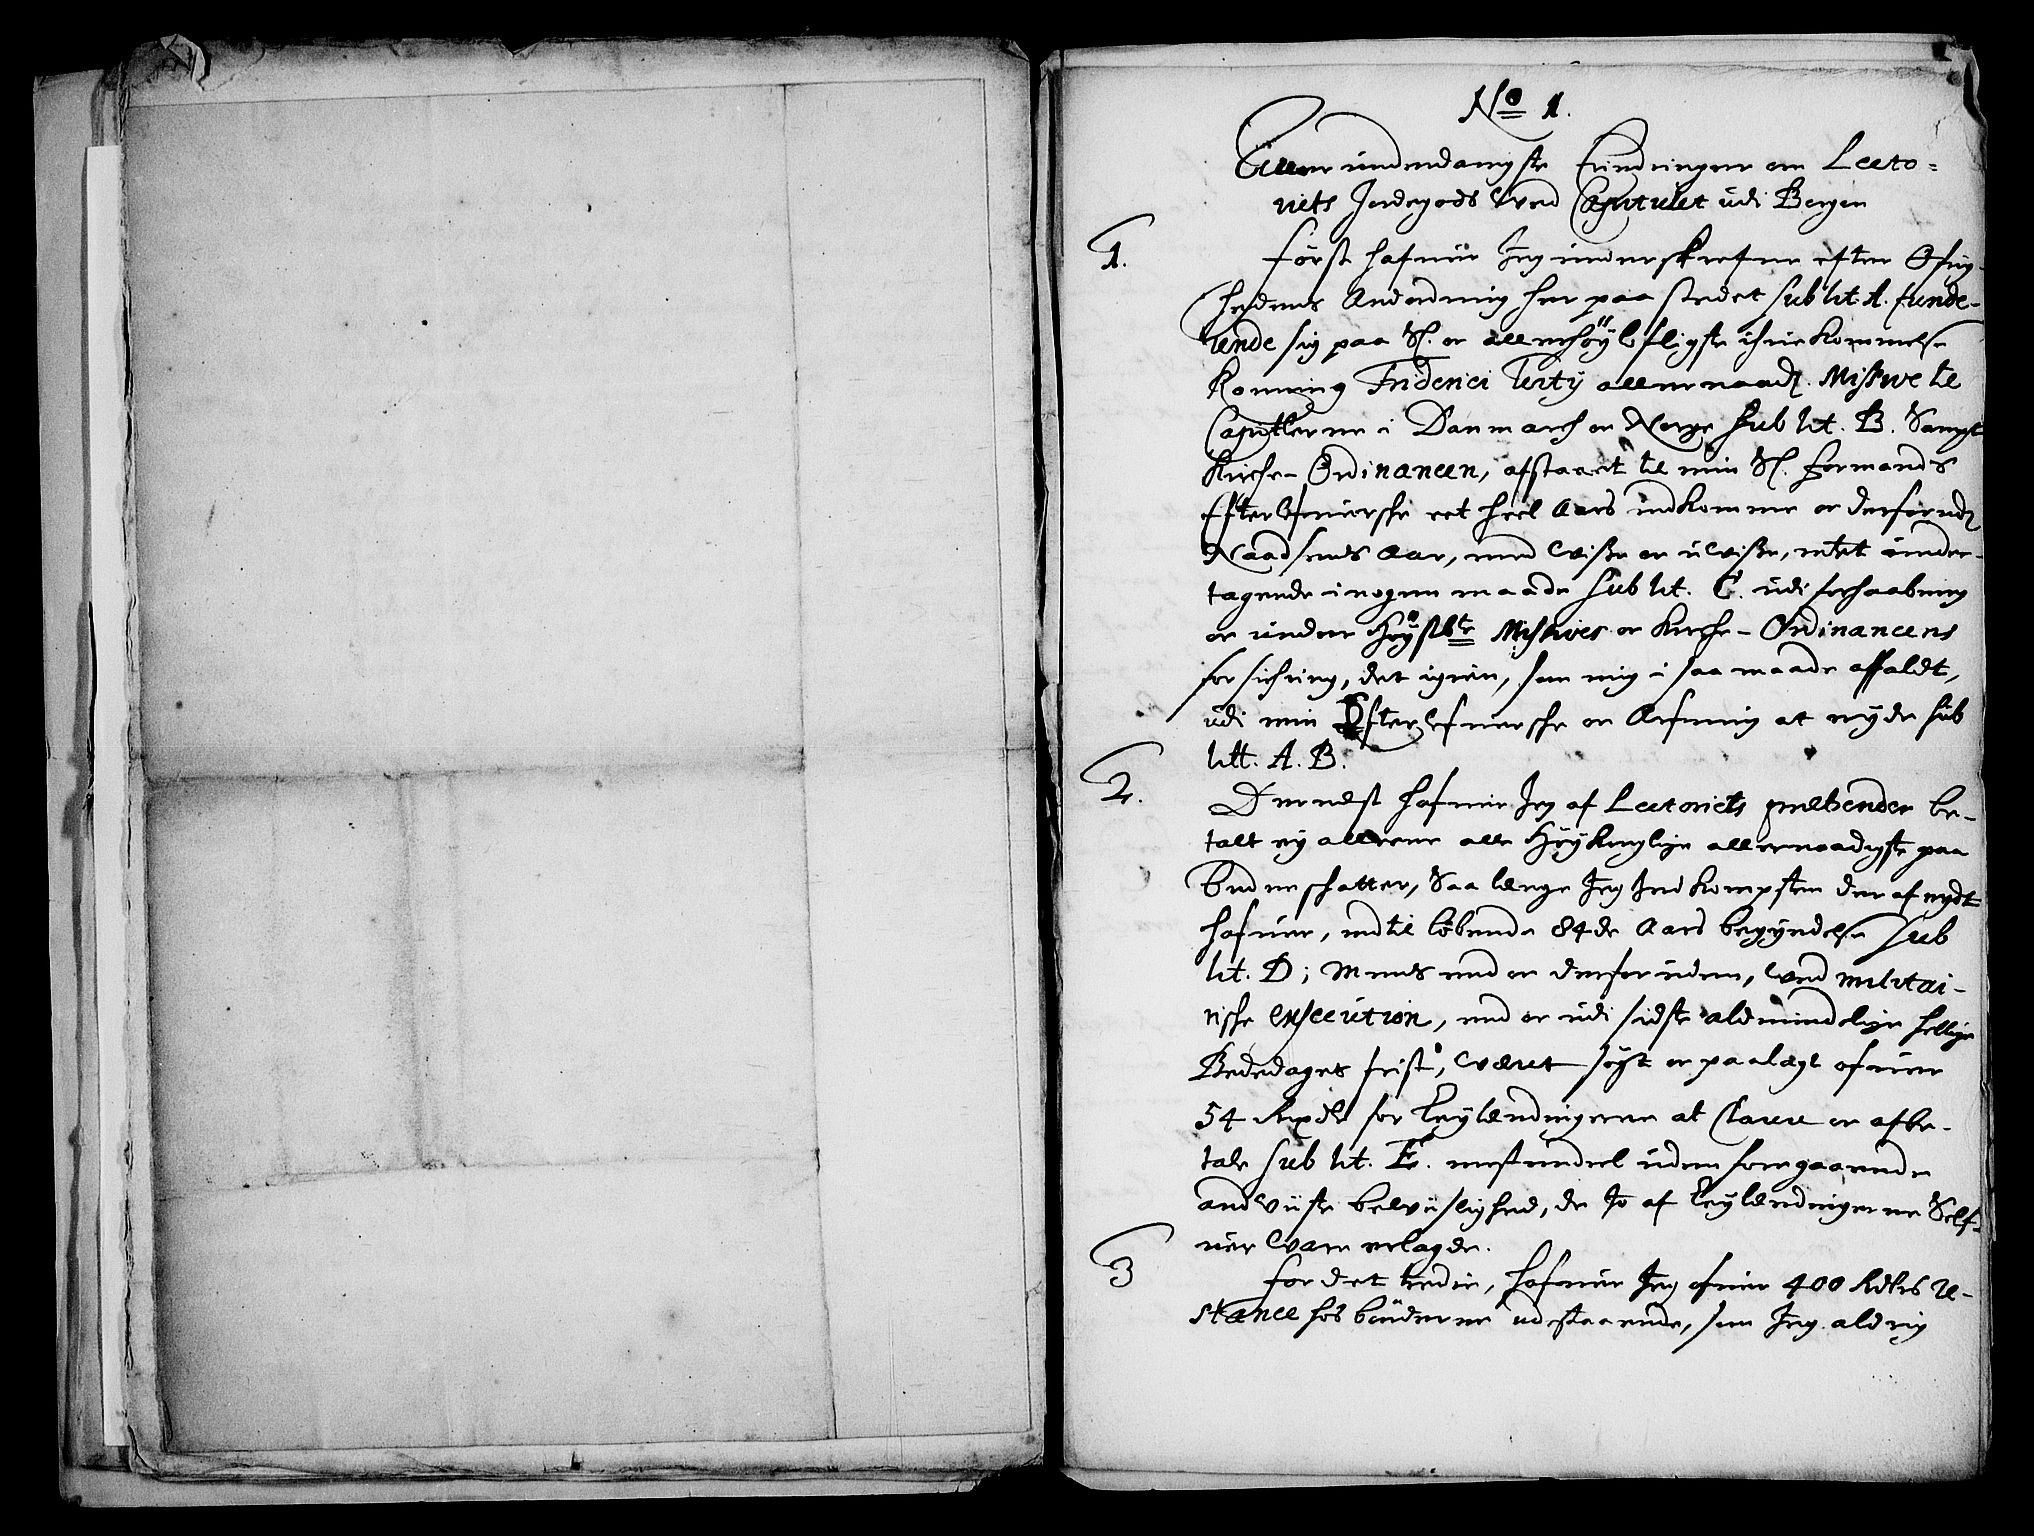 No 1.
Aller underdanigste Erindringer om Lecto-
riets Jordegods Wed Capitulet udi Bergen
1. Först hafuer Jeg underskrefne efter Öfrig-
hedens Anordning her paa stedet sub lit. A. funde-
rende sig paa Sl. oc allerhöylofligste ihuekommelse
Konning Friderici Tertij allernaadl. Missive til
Capitlerne i Danmarch oc Norge sub lit. B. Sampt
Kirche-Ordinancen, afstaaet til min Sl. formands
Efterlefuersche eet heel Aars indkomme oc derforudl
Naadsens Aar, med Wisse oc uWisse, intet under-
tagende i nogen maade sub lit. C. udi forhaabning
oc under Höystbte Missives oc Kirche-Ordinancens
forsichring, det igien, som mig i saa maade affaldt,
udi min Efterlefuersche oc Arfuing at nyde sub
litt. A. B.
2. Dernest hafuer Jeg af Lectoriets præbender be-
talt ey alleene alle Höykonglige allernaadigste paa
budne schatter, Saa længe Jeg Indkompsten der af nydt
hafuer, indtil löbende 84de Aars begyndelse sub
lit. D; Mens end oc derforuden, Wed militai-
rische execution, end oc udi sidste almindelige hellige
Bededages frist, Wæret sögt oc paalagt ofuer
54 Rixdlr for Leylændingerne at Clarere oc afbe-
tale sub lit. E. mestendeel uden foregaaende
andViiste beviislighed, de Jo af Leylændingerne Self-
uer Vare erlagde.
3 For det tredie, hafuer Jeg ofuer 400 Rdlrs Re-
stance hos bönderne udestaaende, som Jeg aldrig